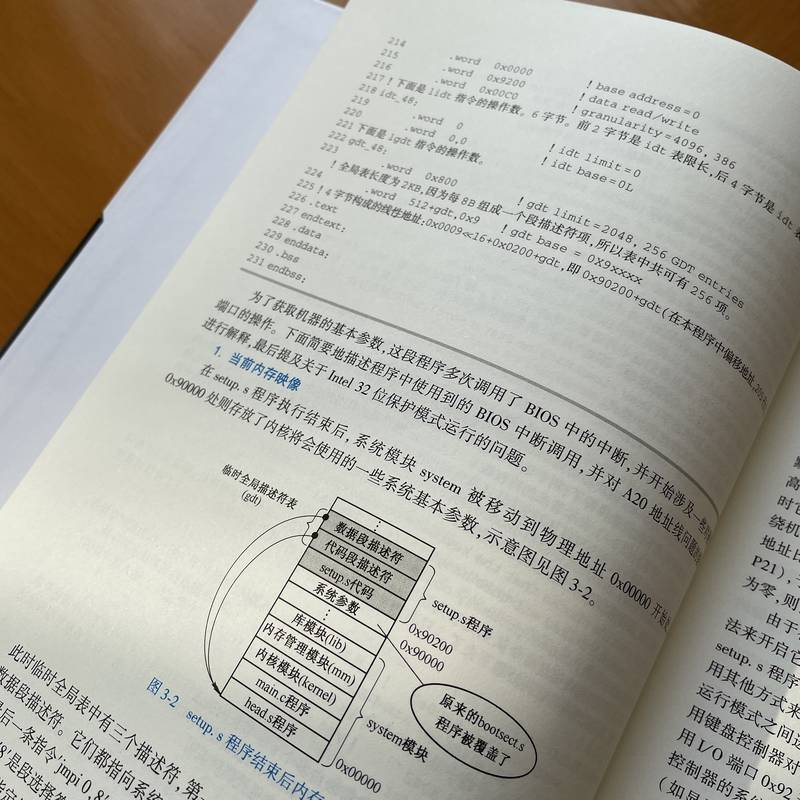 214
215 .word 0x0000 ! base address=0
216 .word 0x9200 ! data read/write
.word 0x00C0 ! granularity=4096, 386
217 ! 下面是 lidt 指令的操作数。6 字节。前 2 字节是 idt 表限长,后 4 字节是 idt 表
218 idt_48:
219 .word 0 ! idt limit=0
220 .word 0,0 ! idt base=0L
221 下面是 lgdt 指令的操作数。
222 gdt_48:
223 .word 0x800 ! gdt limit=2048, 256 GDT entries
! 全局表长度为 2KB,因为每 8B 组成一个段描述符项,所以表中共可有 256 项。
224 .word 512+gdt,0x9 ! gdt base = 0X9xxxx
225 ! 4 字节构成的线性地址:0x0009<<16+0x0200+gdt,即 0x90200+gdt(在本程序中偏移地址,
226 .text
227 endtext:
228 .data
229 enddata:
230 .bss
231 endbss:
为了获取机器的基本参数,这段程序多次调用了 BIOS 中的中断,并开始涉及一些
端口的操作。下面简要地描述程序中使用到的 BIOS 中断调用,并对 A20 地址线问题
进行解释,最后提及关于 Intel 32 位保护模式运行的问题。
1. 当前内存映像
在 setup.s 程序执行结束后,系统模块 system 被移动到物理地址 0x00000 开始
0x90000 处则存放了内核将会使用的一些系统基本参数,示意图见图 3-2。
临时全局描述符表
(gdt)
⋮
数据段描述符
代码段描述符
setup.s代码
系统参数
⋮
库模块(lib)
内存管理模块(mm)
内核模块(kernel)
main.c程序
head.s程序
setup.s程序
0x90200
0x90000
system模块
0x00000
原来的bootsect.s
程序被覆盖了
图 3-2 setup.s 程序结束后内存
此时临时全局表中有三个描述符,第
数据段描述符。它们都指向系
后一条指令'jmpi 0,8'
8'是段选择
高
时它
绕机
地址
P21).
为零,则
由于
法来开启它
setup.s 程序
用其他方式来
运行模式之间
用键盘控制器对
用 I/O 端口 0x92
控制器的系